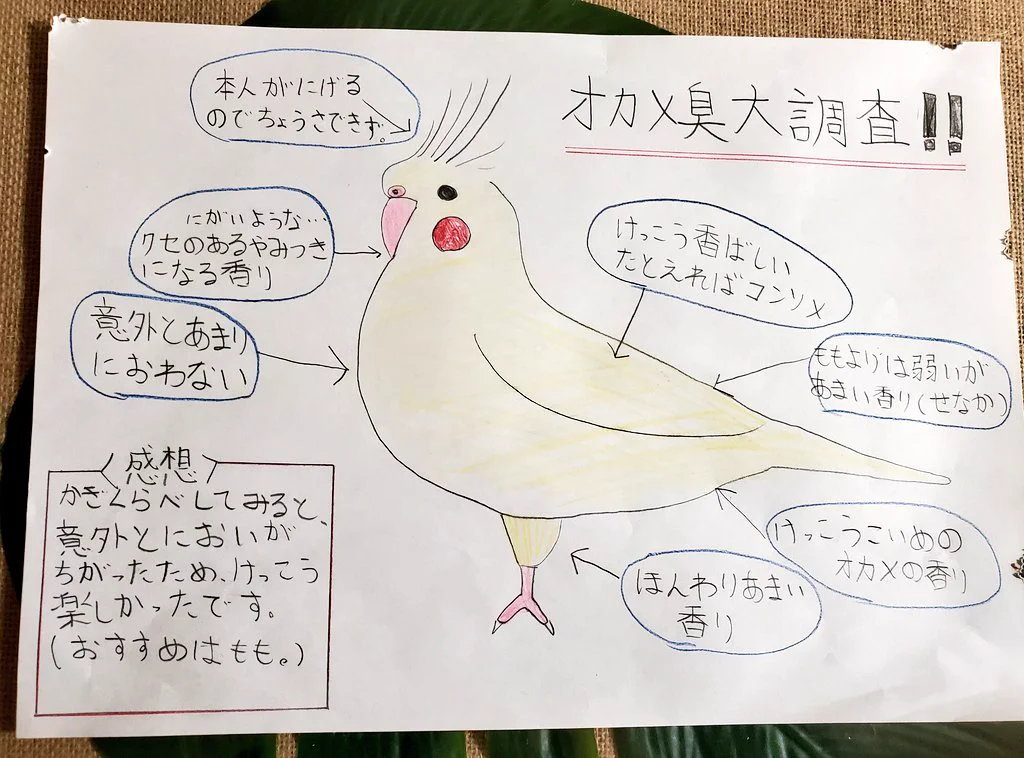 オカメ臭大調査!!
本人がにげる
のでちょうさできず。
にがいような…
クセのあるやみつき
になる香り
意外とあまり
におわない
けっこう香ばしい
たとえればコンソメ
ももよりは弱いが
あまい香り(せなか)
けっこうこいめの
オカメの香り
ほんわりあまい
香り
感想
かぎくらべしてみると、
意外とにおいが
ちがったため、けっこう
楽しかったです。
(おすすめはもも。)